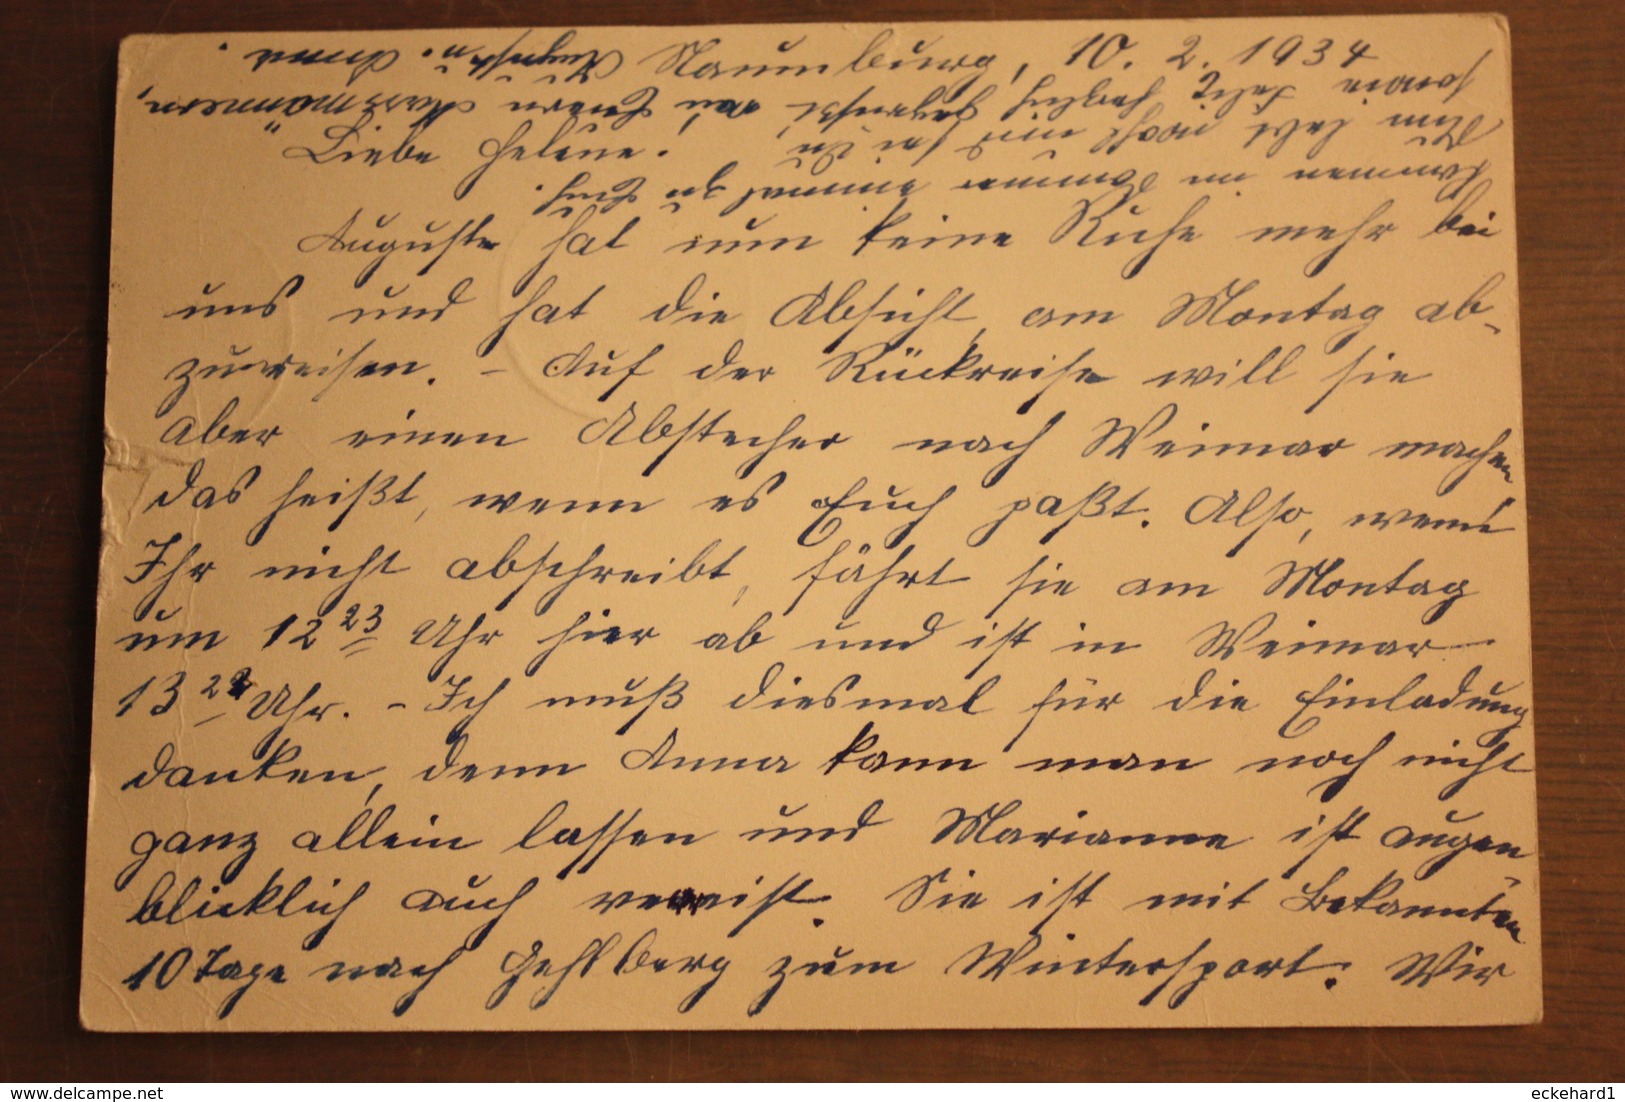 Naumburg, 10. 2. 1934
Liebe Helene!
Auguste hat nun keine Ruhe mehr bei
uns und hat die Absicht, am Montag ab-
zureisen. – Auf der Rückreise will sie
aber einen Abstecher nach Weimar machen,
das heißt, wenn es Euch paßt. Also, wenn
Ihr nicht abschreibt, fährt sie am Montag
um 12 23 Uhr hier ab und ist in Weimar
13 22 Uhr. – Ich muß diesmal für die Einladung
danken, denn Anna kann man noch nicht
ganz allein lassen und Marianne ist augen
blicklich auch verreist. Sie ist mit Bekannten
10 Tage nach Gehlberg zum Wintersport. Wir
kommen im Sommer einmal zu Euch.
Nun lebt wohl und sei Du
sowie Fritz herzlich gegrüßt von Euern Naumburgern,
Auguste u. Anna.
eckehard1